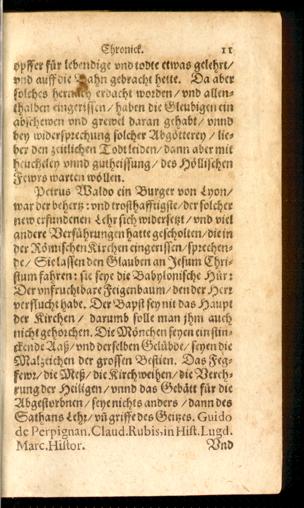 Chronick. 11
opffer für lebendige vnd todte etwas gelehrt/
vnd auff die Bahn gebracht hette. Da aber
solches hernach erdacht worden/ vnd allen-
thalben eingerissen/ haben die Gleubigen ein
abschewen vnd grewel daran gehabt/ vnnd
bey widersprechung solcher Abgötterey/ lie-
ber den zeitlichen Todt leiden/ dann aber mit
heucheley vnnd gutheissung/ des Höllischen
Fewrs warten wöllen.
Petrus Waldo ein Burger von Lyon/
war der behertz: vnd trosthafftigste/ der solcher
new erfundenen Lehr sich widersetzt/ vnd viel
andere Verführungen hatte gescholten/ die in
der Römischen Kirchen eingerissen/ sprechen-
de/ Sie lassen den Glauben an Jesum Chri-
stum fahren: sie seye die Babylonische Hür:
Der vnfruchtbare Feigenbaum/ den der Herr
verflucht habe. Der Bapst sey nit das Haupt
der Kirchen/ darumb solle man jhm auch
nicht gehorchen. Die Mönchen seyen ein stin-
ckendt Aaß/ vnd derselben Gelübde/ seyen die
Malzeichen der grossen Bestien. Das Feg-
fewr/ die Meß/ die Kirchweihen/ die Vereh-
rung der Heiligen/ vnnd das Gebätt für die
Abgestorbnen/ seye nichts anders/ dann des
Sathans Lehr/ vñ griffe des Geitzes. Guido
de Perpignan. Claud. Rubis, in Hist. Lugd.
Marc. Histor. Vnd